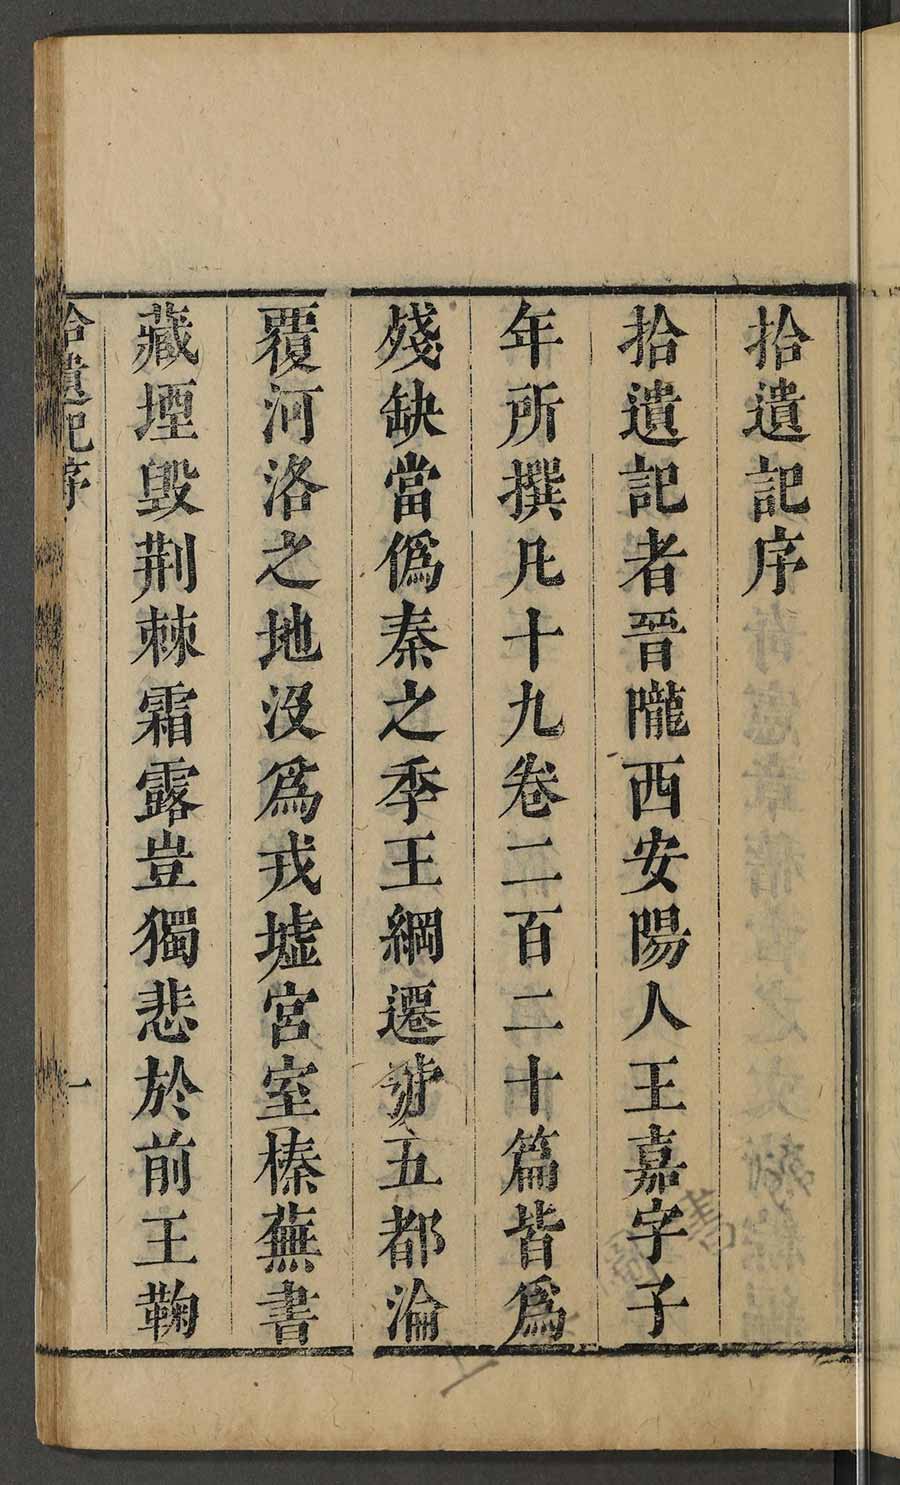 拾遺記序
拾遺記者晉隴西安陽人王嘉字子
年所撰凡十九卷二百二十篇皆爲
殘缺當僞秦之季王綱遷號五都淪
覆河洛之地沒爲戎墟宮室榛蕪書
藏堙毀荆棘霜露豈獨悲於前王鞠
拾遺記序
一